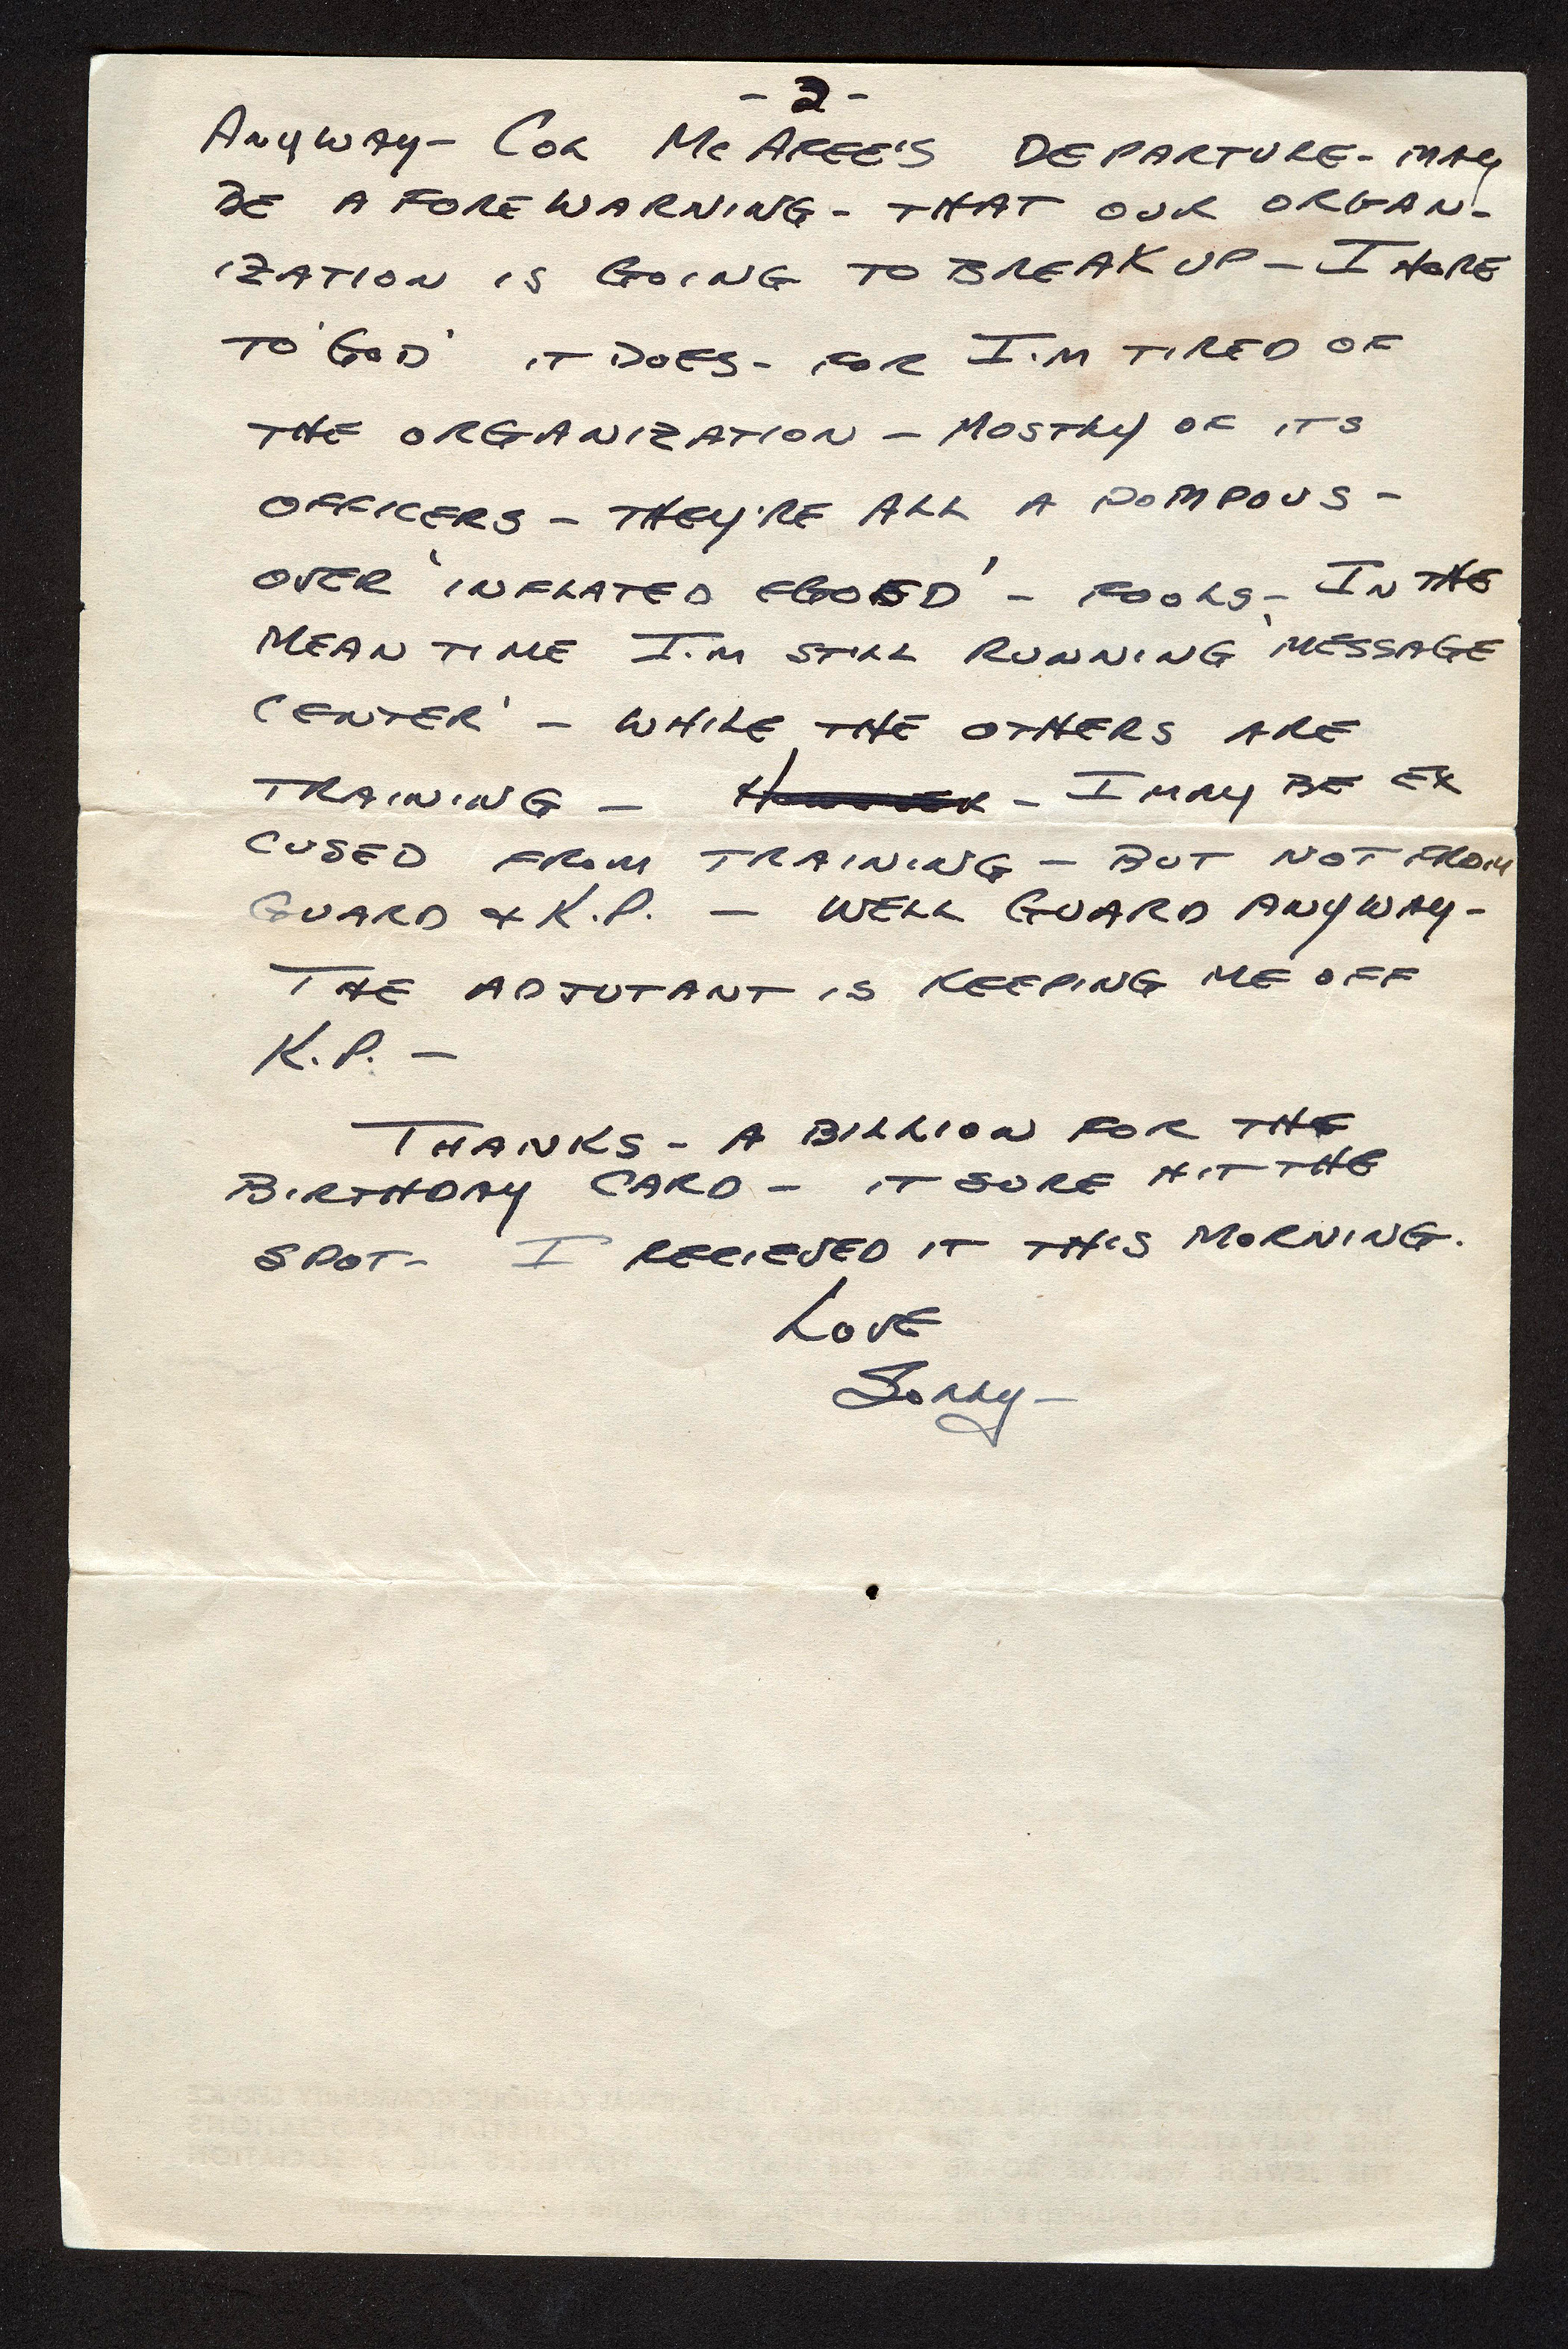 - 2 -
ANYWAY - COL McAFEE'S DEPARTURE - MAY
BE A FOREWARNING - THAT OUR ORGAN-
IZATION IS GOING TO BREAK UP - I HOPE
TO 'GOD' IT DOES - FOR I'M TIRED OF
THE ORGANIZATION - MOSTLY OF ITS
OFFICERS - THEY'RE ALL A POMPOUS -
OVER 'INFLATED EGOED' - FOOLS - IN THE
MEAN TIME I'M STILL RUNNING 'MESSAGE
CENTER' - WHILE THE OTHERS ARE
TRAINING - - I MAY BE EX
CUSED FROM TRAINING - BUT NOT FROM
GUARD & K.P. - WELL GUARD ANYWAY -
THE ADJUTANT IS KEEPING ME OFF
K.P. -
THANKS - A BILLION FOR THE
BIRTHDAY CARD - IT SURE HIT THE
SPOT - I RECIEVED IT THIS MORNING.
LOVE